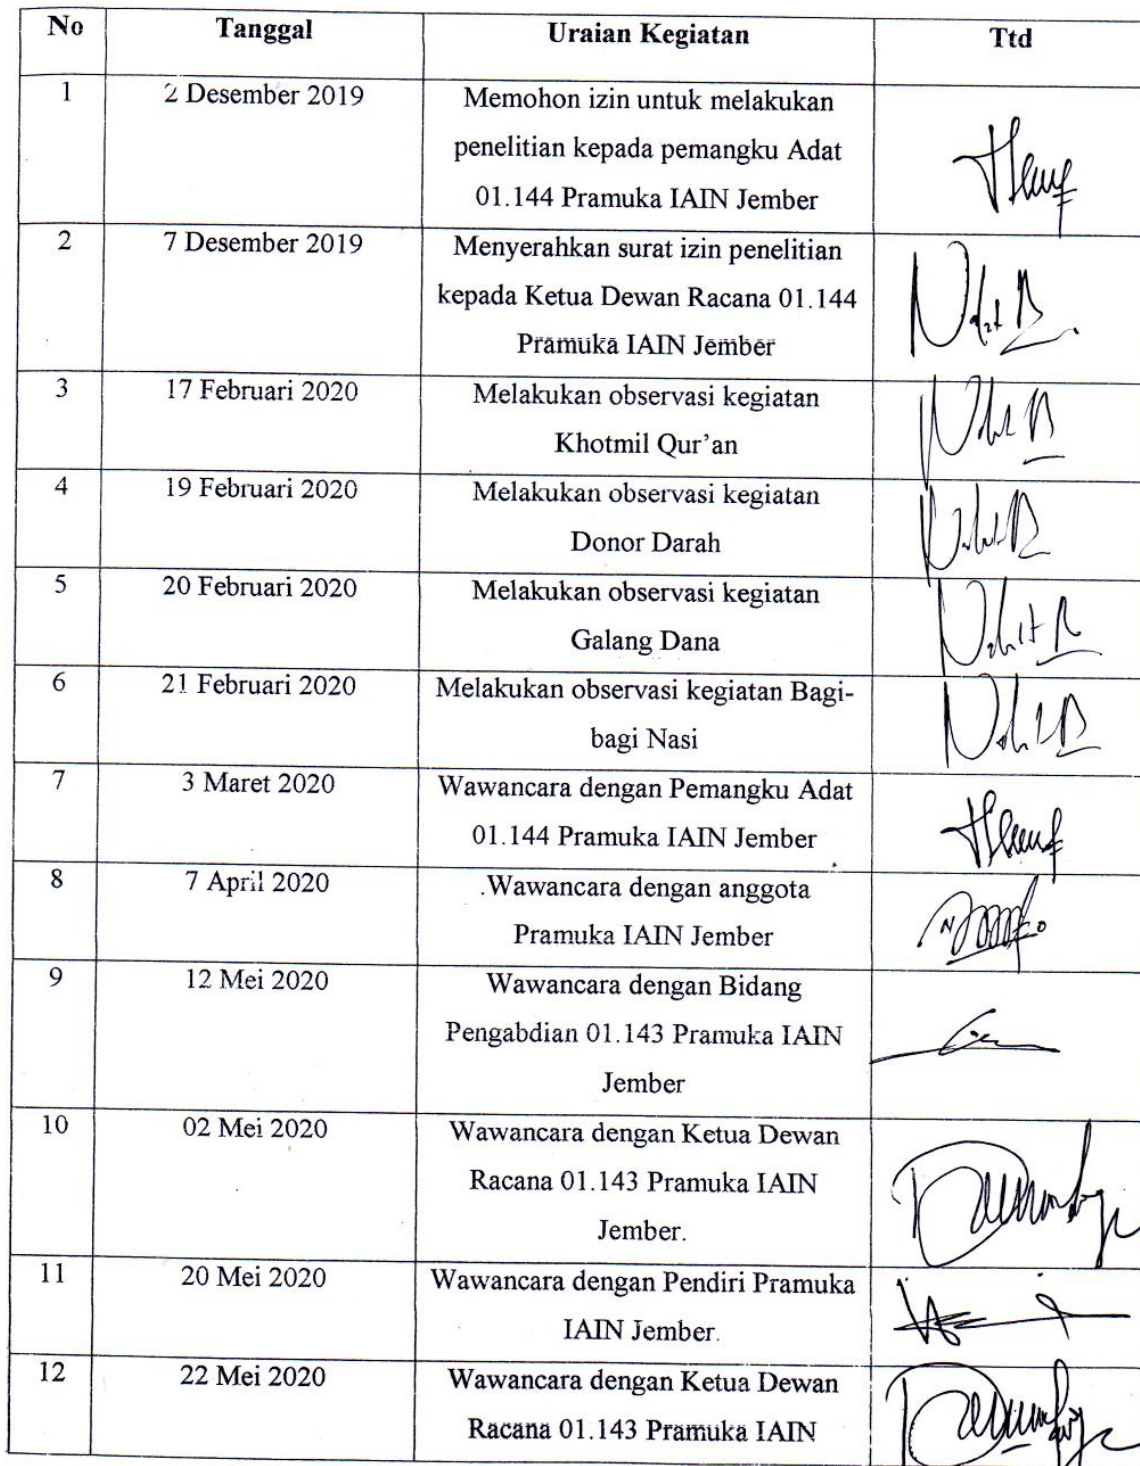 No Tanggal Uraian Kegiatan Ttd
1 2 Desember 2019 Memohon izin untuk melakukan
penelitian kepada pemangku Adat
01.144 Pramuka IAIN Jember
2 7 Desember 2019 Menyerahkan surat izin penelitian
kepada Ketua Dewan Racana 01.144
Pramuka IAIN Jember
3 17 Februari 2020 Melakukan observasi kegiatan
Khotmil Qur'an
4 19 Februari 2020 Melakukan observasi kegiatan
Donor Darah
5 20 Februari 2020 Melakukan observasi kegiatan
Galang Dana
6 21 Februari 2020 Melakukan observasi kegiatan Bagi-
bagi Nasi
7 3 Maret 2020 Wawancara dengan Pemangku Adat
01.144 Pramuka IAIN Jember
8 7 April 2020 .Wawancara dengan anggota
Pramuka IAIN Jember
9 12 Mei 2020 Wawancara dengan Bidang
Pengabdian 01.143 Pramuka IAIN
Jember
10 02 Mei 2020 Wawancara dengan Ketua Dewan
Racana 01.143 Pramuka IAIN
Jember.
11 20 Mei 2020 Wawancara dengan Pendiri Pramuka
IAIN Jember.
12 22 Mei 2020 Wawancara dengan Ketua Dewan
Racana 01.143 Pramuka IAIN